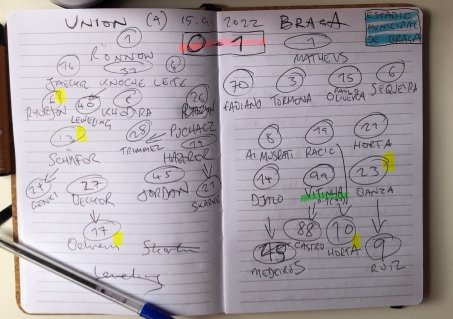 UNION (A) 15.9. 2022 BRAGA
ESTADIO
MUNICIPAL
DE BRAGA
0 - 1
1
RÖNNOW
1
MATHEUS
14 31 4
JAECKEL KNOCHE LEITE
70 3 15 6
FABIANO TORMENA PAULO OLIVEIRA SEQUEIRA
6 40 8 26
RYERSON LEVELING KHEDIRA
28 PUCHACZ
13 TRIMMEL HABERER
SCHÄFER
8 19 21
AL MUSRATI RACIC HORTA
27 45 21
BECKER JORDAN
14 99 23
DJALO VITINHA BANZA
17
88 10 9
CASTRO HORTA RUIZ
45
MEDEIROS
Leveling